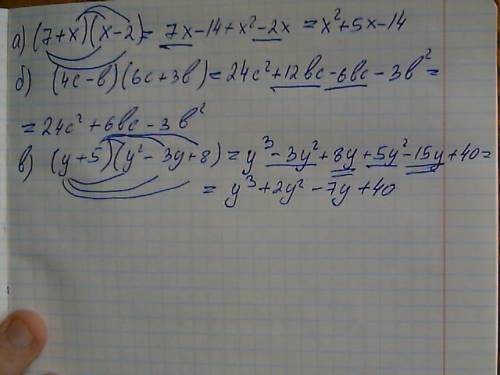 а) (7+x)(x-2)= 7x-14+x²-2x = x²+5x-14
б) (4c-b)(6c+3b)=24c²+12bc-6bc-3b²=
=24c²+6bc-3b²
в) (y+5)(y²-3y+8)=y³-3y²+8y+5y²-15y+40=
= y³+2y²-7y+40